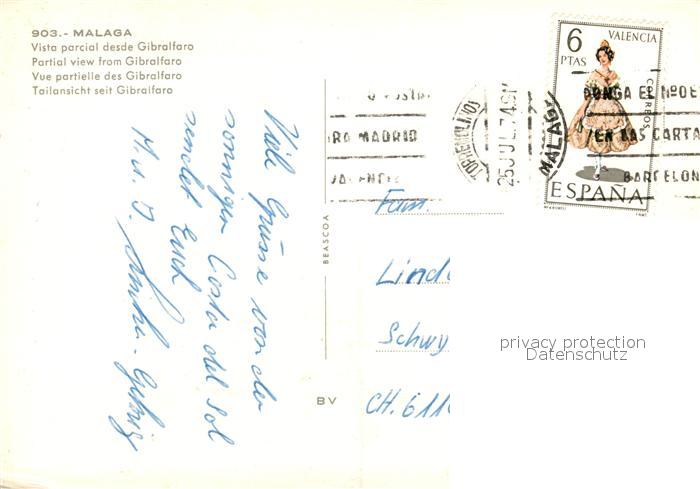 903.- MALAGA
Vista parcial desde Gibralfaro
Partial view from Gibralfaro
Vue partielle des Gibralfaro
Tailansicht seit Gibralfaro
Viele Grüsse von der
sonnigen Costa del Sol
sendet Euch
BEASCOA
BV
6
PTAS
VALENCIA
CORREOS
ESPAÑA
MADRID
TORREMOLINOS
25 JUL 74
MALAGA
PONGA EL Nº DE
EN LAS CARTA
BARCELON
Fam.
Lind
Schwy
CH. 611
privacy protection
Datenschutz